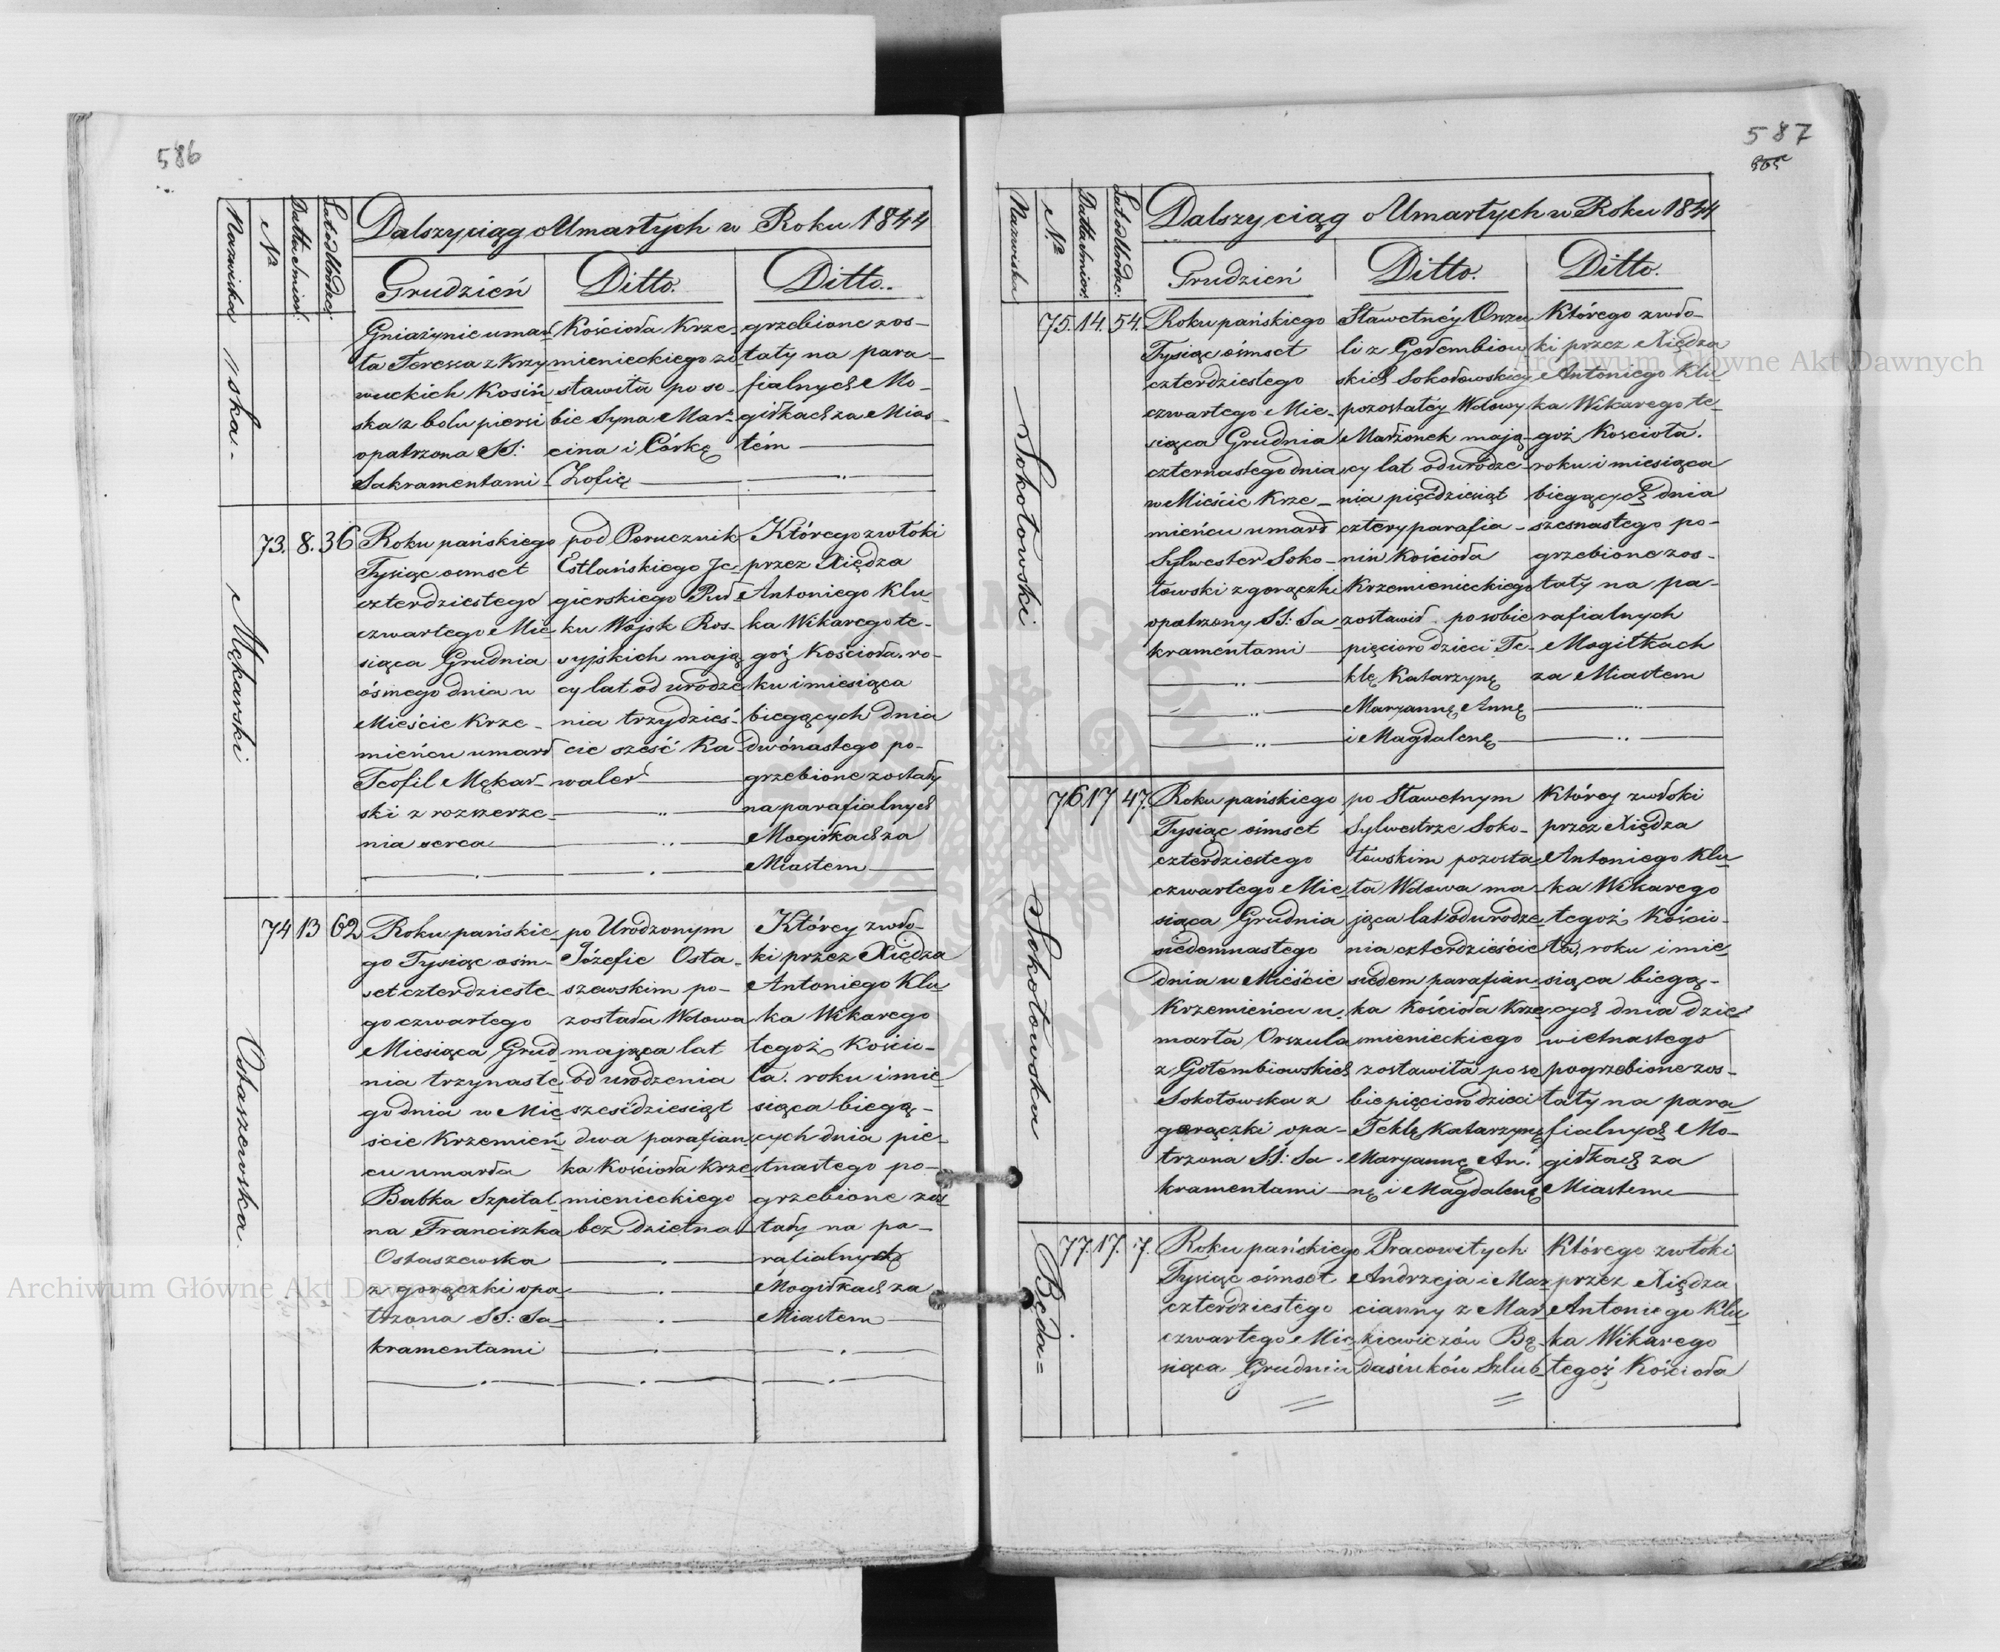 586
Nazwiska
No
Datta śmierci
Lat od Urodze:
Dalszy ciąg o Umartych w Roku 1844
Grudzień
Ditto.
Ditto.
ńska.
Gniażynie umar
ta Teressa z Krzy
wuckich Kosiń
ska z bolu piersi
opatrzona SS:
Sakramentami
Kościoła Krze-
mienieckiego zo
stawiła po so-
bie Syna Mar-
cina i Córkę
Zofię
grzebione zos-
tały na para-
fialnych Mo-
giłkach za Mias
tém
Mękarski
73. 8. 36
Roku pańskiego
Tysiąc osmset
czterdziestego
czwartego Mie
siąca Grudnia
ósmego dnia w
Mieście Krze-
mieńcu umarł
Teofil Mękar-
ski z rozszerze-
nia serca
pod Porucznik
Estlańskiego Je-
gierskiego Puł
ku Wojsk Ros-
syjskich mają
cy lat od urodze
nia trzydzieś-
cie sześć Ka-
waler
Którego zwłoki
przez Xiędza
Antoniego Klu
ka Wikarego te-
goż Kościoła. ro-
ku i miesiąca
biegących dnia
dwónastego po-
grzebione zostały
na parafialnych
Mogiłkach za
Miastem
Ostaszewska.
74 13 62
Roku pańskie-
go Tysiąc osm-
set czterdzieste-
go czwartego
Miesiąca Grud
nia trzynaste
go dnia w Mie
ście Krzemień
cu umarła
Babka Szpital-
na Franciszka
Ostaszewska
z gorączki opa
trzona SS: Sa-
kramentami
po Urodzonym
Józefie Osta-
szewskim po-
została Wdowa
mająca lat
od urodzenia
sześćdziesiąt
dwa parafian
ka Kościoła Krze
mienieckiego
bez dzietna
Którey zwło-
ki przez Xiędza
Antoniego Klu
ka Wikarego
tegoż Kościo-
ła. roku i mie
siąca biegą-
cych dnia pię-
tnastego po-
grzebione zos
tały na pa-
rafialnych
Mogiłkach za
Miastem
587
565
Nazwiska
No
Datta śmier:
Lat od Urodze:
Dalszy ciąg o Umartych w Roku 1844
Grudzień
Ditto.
Ditto.
Sokołowski
75. 14. 54.
Roku pańskiego
Tysiąc ośmset
czterdziestego
czwartego Mie-
siąca Grudnia
czternastego dnia
w Mieście Krze-
mieńcu umarł
Sylwester Soko-
łowski z gorączki
opatrzony SS: Sa-
kramentami
Sławetnéy Orszu
li z Gołembiow
skich Sokołowskiey
pozostałéy Wdowy
Małżonek mają-
cy lat od urodze-
nia pięćdziesiąt
cztery parafia-
nin Kościoła
Krzemienieckiego
zostawił po sobie
pięcioro dzieci Te-
klę Katarzynę
Maryannę Annę
i Magdalenę
Którego zwło-
ki przez Xiędza
Antoniego Klu
ka Wikarego te-
goż Kościoła.
roku i miesiąca
biegących dnia
szesnastego po-
grzebione zos-
tały na pa-
rafialnych
Mogiłkach
za Miastem
Sokołowska
76 17 47.
Roku pańskiego
Tysiąc ośmset
czterdziestego
czwartego Mie
siąca Grudnia
siedemnastego
dnia w Mieście
Krzemieńcu u-
marła Orszula
z Gołembiowskich
Sokołowska z
gorączki opa-
trzona SS: Sa-
kramentami
po Sławetnym
Sylwestrze Soko-
łowskim pozosta
ła Wdowa ma-
jąca lat od urodze
nia czterdzieście
siedem parafian-
ka Kościoła Krze-
mienieckiego
zostawiła po so
bie pięcioro dzieci
Teklę Katarzynę
Maryannę An-
nę i Magdalenę
Którey zwłoki
przez Xiędza
Antoniego Klu
ka Wikarego
tegoż Kościo-
ła, roku i mie
siąca biegą-
cych dnia dzie
wietnastego
pogrzebione zos-
tały na para
fialnych Mo-
giłkach za
Miastem
Będa=
77. 17. 7.
Roku pańskiego
Tysiąc ośmset
czterdziestego
czwartego Mie
siąca Grudnia
Pracowitych
Andrzeja i Mar
cianny z Mar
kiewiczów Bę-
dasiuków Szlub
Którego zwłoki
przez Xiędza
Antoniego Klu
ka Wikarego
tegoż Kościoła
Archiwum Główne Akt Dawnych
Archiwum Główne Akt Dawnych